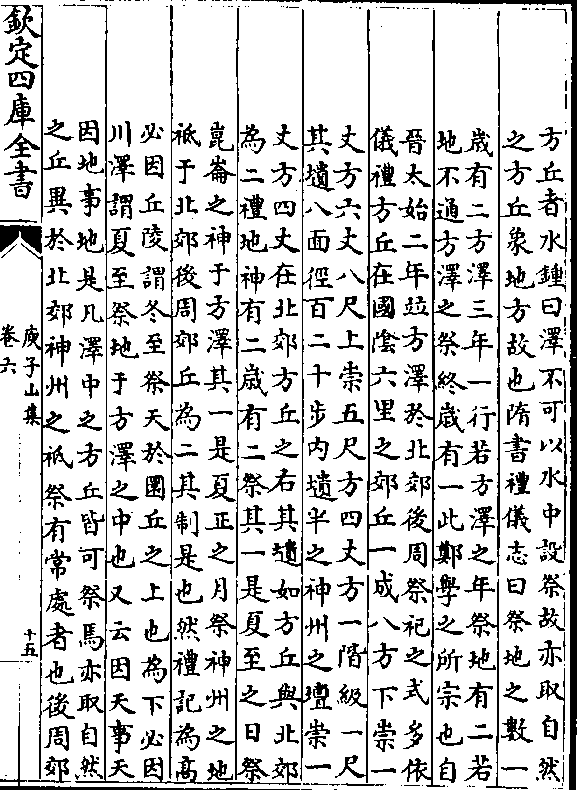 方丘者水鍾曰澤不可以水中設祭故亦取自然
之方丘象地方故也隋書禮儀志曰祭地之數一
歲有二方澤三年一行若方澤之年祭地有二若
地不通方澤之祭終歲有一此鄭學之所宗也自
晉太始二年竝方澤於北郊後周祭祀之式多依
儀禮方丘在國陰六里之郊丘一成八方下崇一
丈方六丈八尺上崇五尺方四丈方一階級一尺
其壝八面徑百二十步内壝半之神州之壇崇一
丈方四丈在北郊方丘之右其壝如方丘與北郊
為二禮地神有二歲有二祭其一是夏至之日祭
崑崙之神于方澤其一是夏正之月祭神州之地
祇于北郊後周郊丘為二其制是也然禮記為高
必因丘陵謂冬至祭天於圜丘之上也為下必因
川澤謂夏至祭地于方澤之中也又云因天事天
因地事地是凡澤中之方丘皆可祭焉亦取自然
之丘異於北郊神州之祇祭有常處者也後周郊
欽定四庫全書
庾子山集
卷六
十五